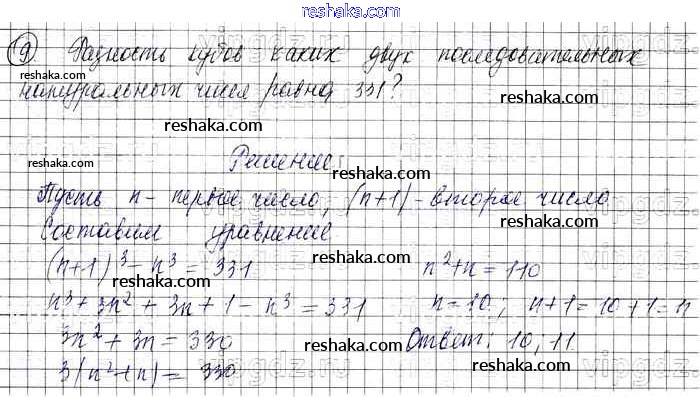 reshaka.com
9 Разность кубов каких двух последовательных
reshaka.com
натуральных чисел равна 331?
reshaka.com
reshaka.com
Решение:
reshaka.com
Пусть n - первое число, (n+1) - второе число.
reshaka.com
Составим уравнение
reshaka.com
(n+1)³ - n³ = 331 n²+n = 110
reshaka.com
n³ + 3n² + 3n + 1 - n³ = 331 n = 10; n+1 = 10+1 = 11
reshaka.com
3n² + 3n = 330 Ответ: 10, 11
reshaka.com
3(n²+n) = 330